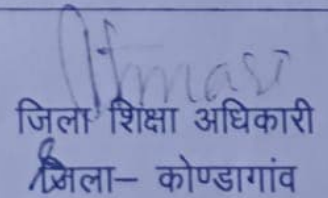 जिला शिक्षा अधिकारी
जिला– कोण्डागांव